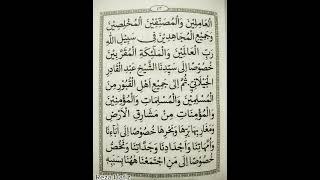 ١٣
الْعَامِلِيْنَ وَالْمُصَنِّفِيْنَ الْمُخْلِصِيْنَ
وَجَمِيْعِ الْمُجَاهِدِيْنَ فِى سَبِيْلِ اللّٰهِ
رَبِّ الْعَالَمِيْنَ وَالْمَلَٓئِكَةِ الْمُقَرَّبِيْنَ
خُصُوْصًا اِلَى سَيِّدِنَا الشَّيْخِ عَبْدِ الْقَادِرِ
الْجَيْلَانِيِّ ثُمَّ اِلَى جَمِيْعِ اَهْلِ الْقُبُوْرِ مِنَ
الْمُسْلِمِيْنَ وَالْمُسْلِمَاتِ وَالْمُؤْمِنِيْنَ
وَالْمُؤْمِنَاتِ مِنْ مَشَارِقِ الْاَرْضِ
وَمَغَارِبِهَا بَرِّهَا وَبَحْرِهَا خُصُوْصًا اِلَى اٰبَاءِنَا
وَاُمَّهَاتِنَا وَاَجْدَادِنَا وَجَدَّاتِنَا وَنَخُصُّ
خُصُوْصًا اِلَى مَنِ اجْتَمَعْنَا هٰهُنَا بِسَبَبِهِ